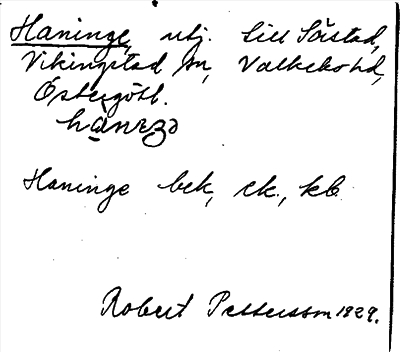 Haninge, utj. till Sörstad,
Vikingstad sn, Valkebo hd,
Östergötl.
Haninge bek, ek., kb
Robert Pettersson 1929.